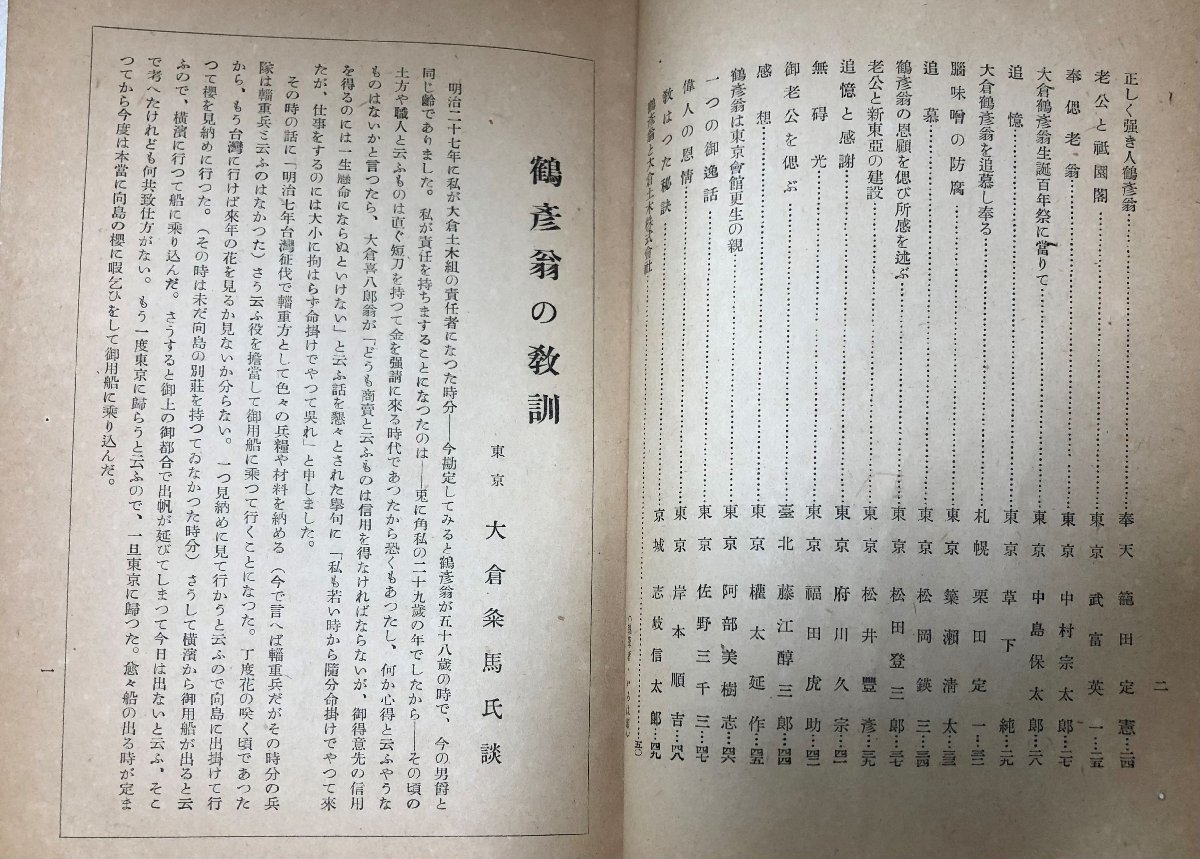 二
正しく强き人鶴彥翁……奉天 籠田定憲…二四
老公と祗園閣……東京 武富英一…二五
奉偲老翁……東京 中村宗太郎…二七
大倉鶴彥翁生誕百年祭に當りて……東京 中島保太郎…二八
追憶……東京 草下純…二九
大倉鶴彥翁を追慕し奉る……札幌 栗田定一…三二
腦味噌の防腐……東京 築瀨淸太…三三
追慕……東京 松岡鍈三…三四
鶴彥翁の恩顧を偲び所感を述ぶ……東京 松田登三郞…三七
老公と新東亞の建設……東京 松井豐彥…三九
追憶と感謝……東京 府川久宗…四一
無碍光……東京 福田虎助…四二
御老公を偲ぶ……臺北 藤江醇三郎…四四
感想……東京 權太延作…四五
鶴彥翁は東京會館更生の親……東京 阿部美樹志…四六
一つの御逸話……東京 佐野三千三…四七
偉人の恩情……東京 岸本順吉…四八
敎はつた秘訣……京城 志岐信太郞…四九
鶴彥翁と大倉土木株式會社……五〇
鶴彥翁の敎訓
東京 大倉粂馬氏談
明治二十七年に私が大倉土木組の責任者になつた時分――今勘定してみると鶴彥翁が五十八歲の時で、今の男爵と
同じ齡でありました。私が責任を持ちますることになつたのは――兎に角私の二十九歲の年でしたから――その頃の
土方や職人と云ふものは直ぐ短刀を持つて金を强請に來る時代であつたから恐くもあつたし、何か心得と云ふやうな
ものはないかと言つたら、大倉喜八郎翁が「どうも商賣と云ふものは信用を得なければならないが、御得意先の信用
を得るのには一生懸命にならぬといけない」と云ふ話を懇々とされた擧句に「私も若い時から隨分命掛けでやつて來
たが、仕事をするのには大小に拘はらず命掛けでやつて吳れ」と申しました。
その時の話に「明治七年台灣征伐で輜重方として色々の兵糧や材料を納める（今で言へば輜重兵だがその時分の兵
隊は輜重兵と云ふのはなかつた）さう云ふ役を擔當して御用船に乘つて行くことになつた。丁度花の咲く頃であつた
から、もう台灣に行けば來年の花を見るか見ないか分らない。一つ見納めに見て行かうと云ふので向島に出掛けて行
つて櫻を見納めに行つた。（その時は未だ向島の別莊を持つてゐなかつた時分）さうして橫濱から御用船が出ると云
ふので、橫濱に行つて船に乘り込んだ。さうすると御上の御都合で出帆が延びてしまつて今日は出ないと云ふ、そこ
で考へたけれども何共致仕方がない。もう一度東京に歸らうと云ふので、一旦東京に歸つた。愈々船の出る時が定ま
つてから今度は本當に向島の櫻に暇乞ひをして御用船に乘り込んだ。
一